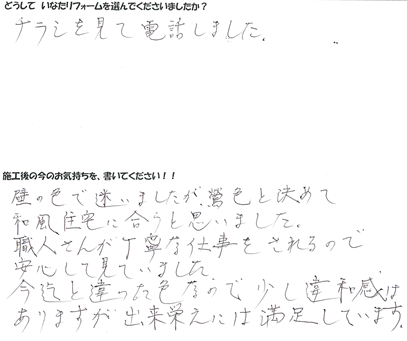 どうして いなだリフォームを選んでくださいましたか?
チラシを見て電話しました。
施工後の今のお気持ちを、書いてください!!
壁の色で迷いましたが、鶯色と決めて
和風住宅に合うと思いました。
職人さんが丁寧な仕事をされるので
安心して見ていました
今迄と違った色なので少し違和感は
ありますが出来栄えには満足しています。